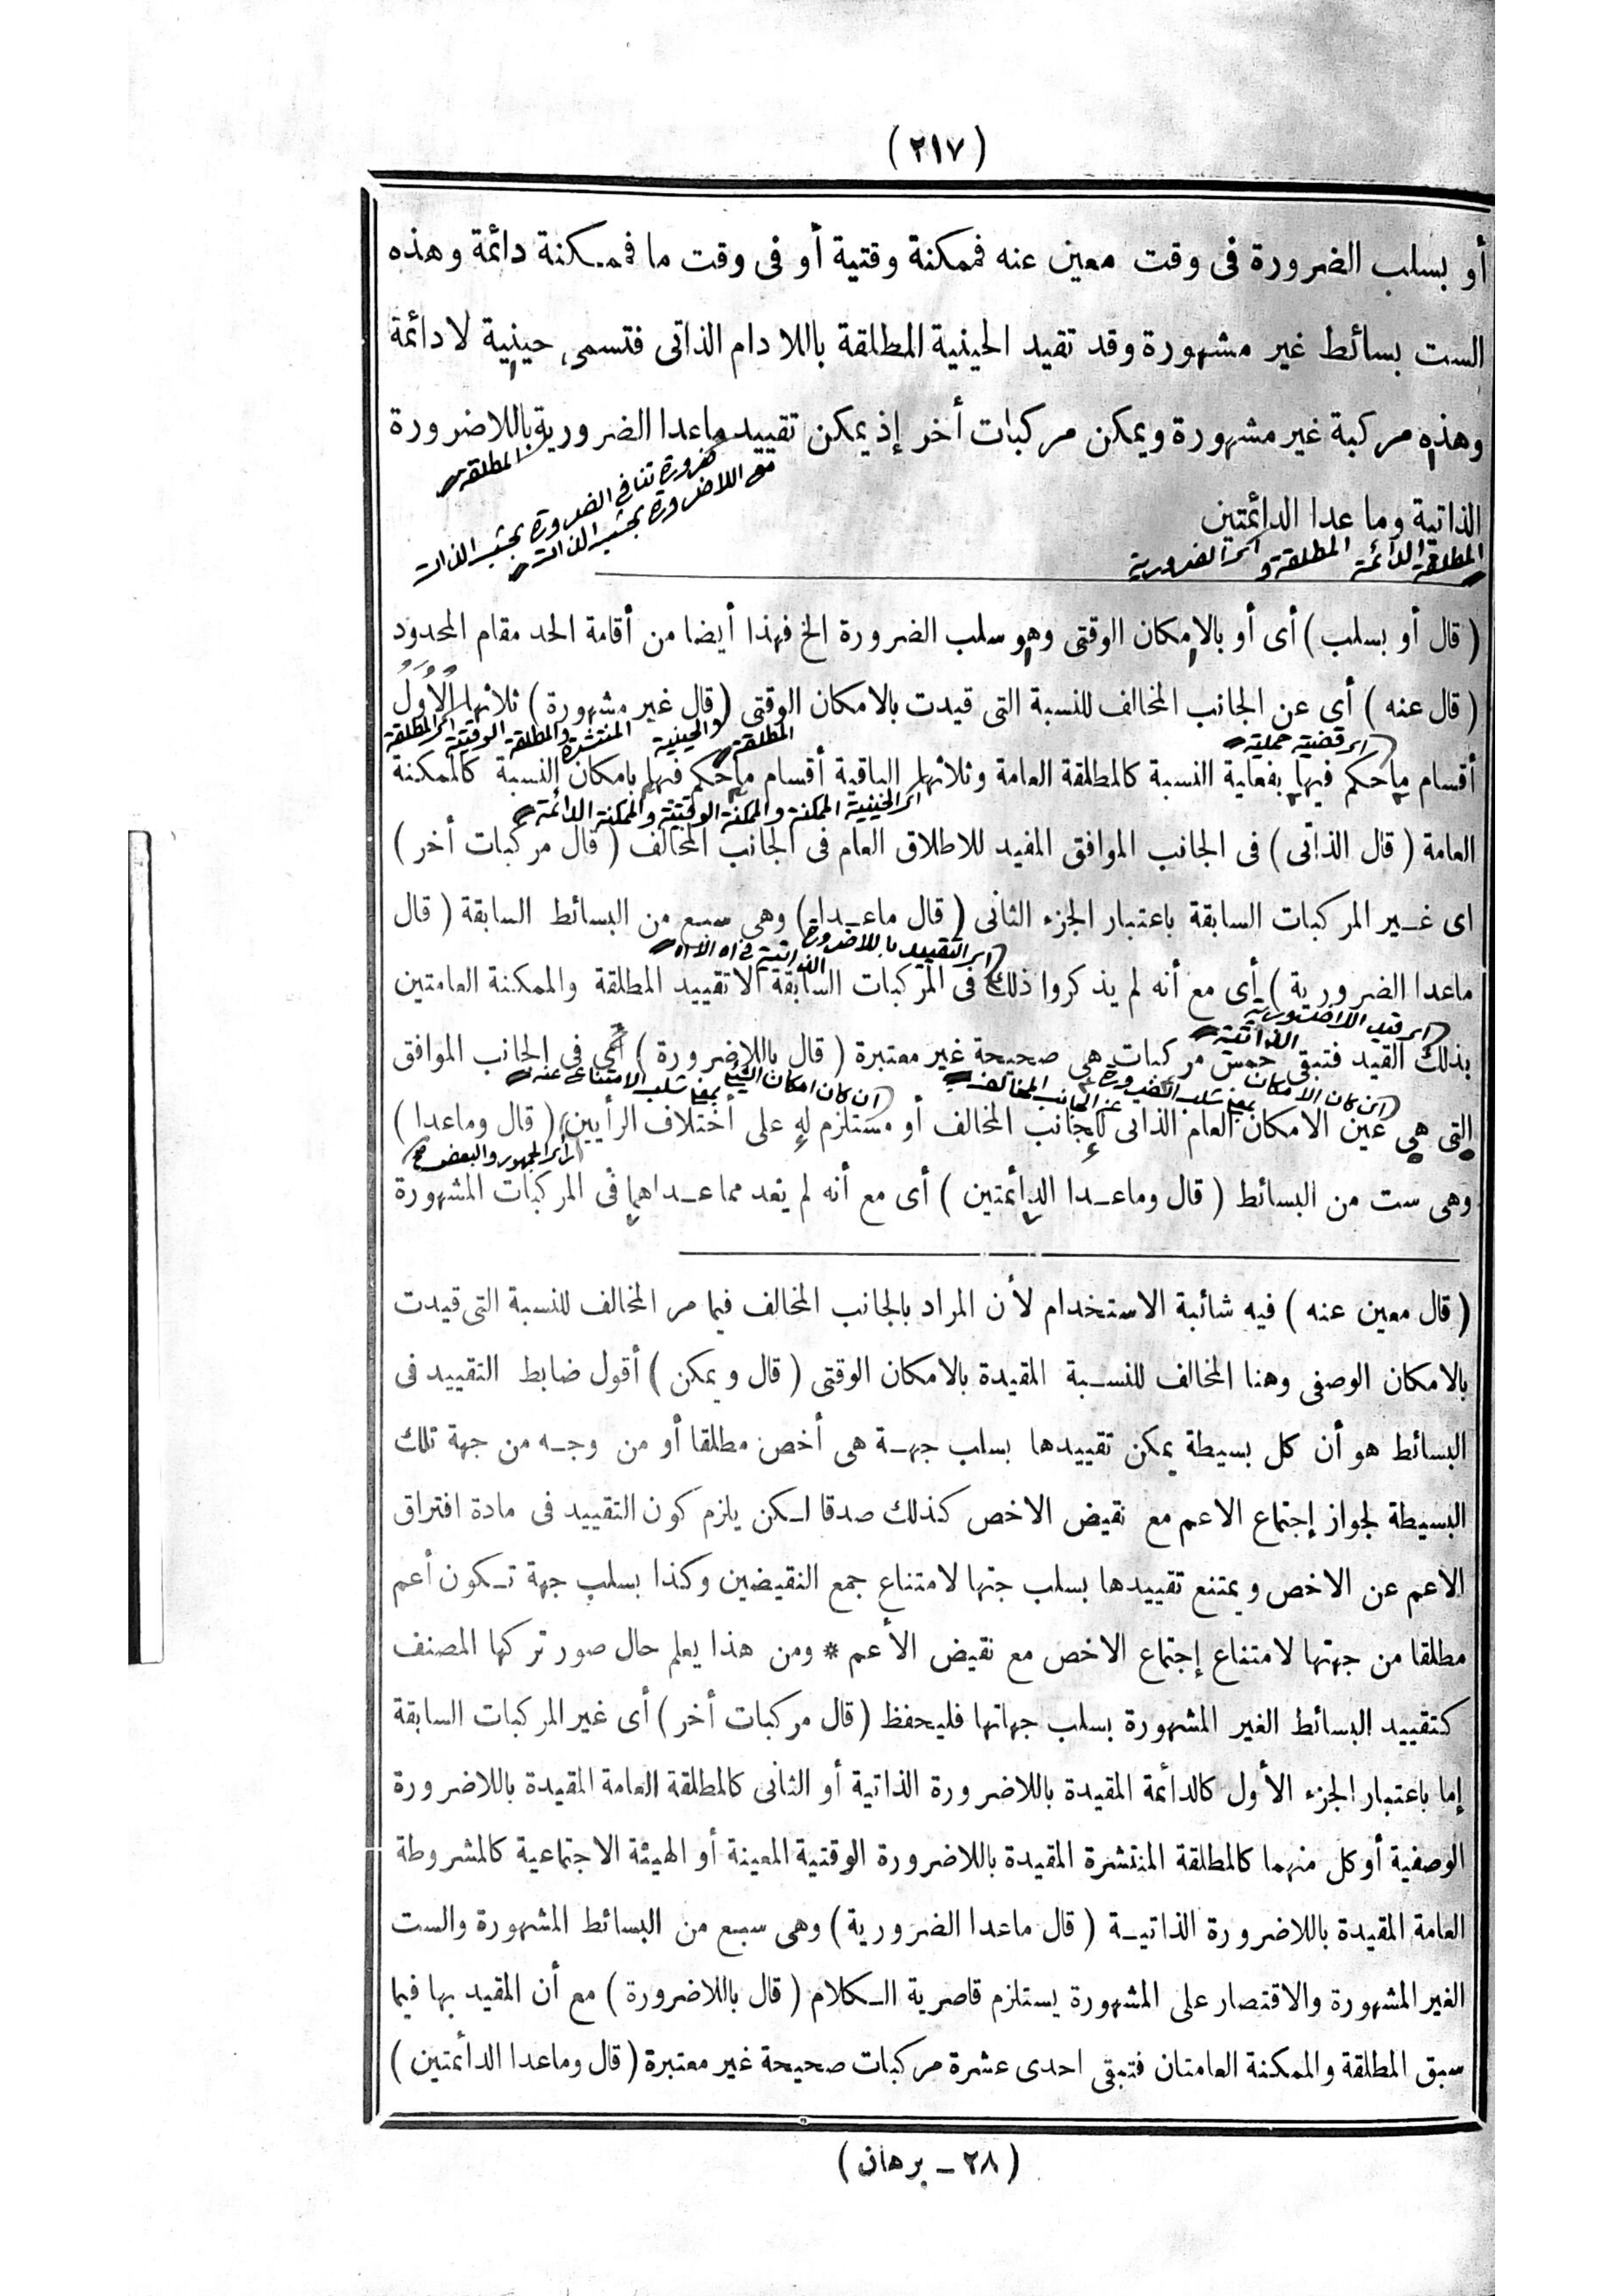 ( ٢١٧ )
أو بسلب الضرورة فى وقت معين عنه فممكنة وقتية أو فى وقت ما فممكنة دائمة وهذه
الست بسائط غير مشهورة وقد تقيد الحينية المطلقة باللا دام الذاتى فتسمى حينية لا دائمة
وهذه مركبة غير مشهورة ويمكن مركبات أخر إذ يمكن تقييد ماعدا الضرورية باللاضرورة
المطلقة
ضرورة تنافى الضرورة بحسب الذات
مع اللاضرورة بحسب الذات
الذاتية وما عدا الدائمتين
المطلقة الدائمة المطلقة و الضرورية
( قال أو بسلب ) أى أو بالإمكان الوقتى وهو سلب الضرورة الخ فهذا أيضا من أقامة الحد مقام المحدود
( قال عنه ) أى عن الجانب المخالف للنسبة التى قيدت بالامكان الوقتى ( قال غير مشهورة ) ثلاثها الأُوَلُ
اى المطلقة الوقتية والمطلقة المنتشرة والحينية المطلقة
اى قضية حملية
أقسام ماحكم فيها بفعلية النسبة كالمطلقة العامة وثلاثها الباقية أقسام ماحكم فيها بامكان النسبة كالممكنة
اى الحينية الممكنة والممكنة الوقتية والممكنة الدائمة
العامة ( قال الذاتى ) فى الجانب الموافق المفيد للاطلاق العام فى الجانب المخالف ( قال مركبات أخر )
اى غير المركبات السابقة باعتبار الجزء الثانى ( قال ماعدا ) وهى سبع من البسائط السابقة ( قال
اى التقييد باللاضرورة الذاتية
ماعدا الضرورية ) أى مع أنه لم يذكروا ذلك فى المركبات السابقة الا تقييد المطلقة والممكنة العامتين
اى قيد اللاضرورية الذاتية
بذلك القيد فتبقى خمس مركبات هى صحيحة غير معتبرة ( قال باللاضرورة ) أى فى الجانب الموافق
ان كان الامكان بمعنى سلب الضرورة عن الجانب المخالف
ان كان امكان الشئ بمعنى سلب الامتناع عنه
التى هى عين الامكان العام الذاتى للجانب المخالف أو مستلزم له على أختلاف الرأيين ( قال وماعدا )
اى الجمهور والبعض
وهى ست من البسائط ( قال وماعدا الدائمتين ) أى مع أنه لم يقد مماعداهما فى المركبات المشهورة
( قال معين عنه ) فيه شائبة الاستخدام لأن المراد بالجانب المخالف فيما مر المخالف للنسبة التى قيدت
بالامكان الوصفى وهنا المخالف للنسبة المقيدة بالامكان الوقتى ( قال ويمكن ) أقول ضابط التقييد فى
البسائط هو أن كل بسيطة يمكن تقييدها بسلب جهة هى أخص مطلقا أو من وجه من جهة تلك
البسيطة لجواز إجتماع الاعم مع نقيض الاخص كذلك صدقا لكن يلزم كون التقييد فى مادة افتراق
الاعم عن الاخص ويمتنع تقييدها بسلب جتها لامتناع جمع النقيضين وكذا بسلب جهة تكون أعم
مطلقا من جهتها لامتناع إجتماع الاخص مع نقيض الأعم * ومن هذا يعلم حال صور تركها المصنف
كتقييد البسائط الغير المشهورة بسلب جهاتها فليحفظ ( قال مركبات أخر ) أى غير المركبات السابقة
إما باعتبار الجزء الأول كالدائمة المقيدة باللاضرورة الذاتية أو الثانى كالمطلقة العامة المقيدة باللاضرورة
الوصفية أو كل منهما كالمطلقة المنتشرة المقيدة باللاضرورة الوقتية المعينة أو الهيئة الاجتماعية كالمشروطة
العامة المقيدة باللاضرورة الذاتية ( قال ماعدا الضرورية ) وهى سبع من البسائط المشهورة والست
الغير المشهورة والاقتصار على المشهورة يستلزم قاصرية الكلام ( قال باللاضرورة ) مع أن المقيد بها فيما
سبق المطلقة والممكنة العامتان فتبقى احدى عشرة مركبات صحيحة غير معتبرة ( قال وماعدا الدائمتين )
( ٢٨ - برهان )